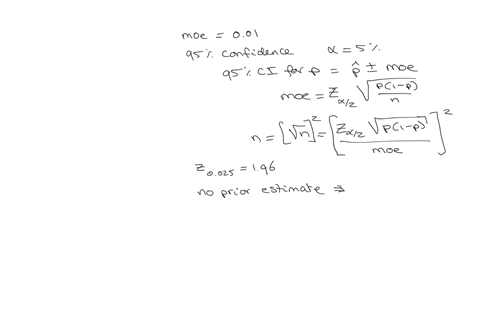 moe = 0.01
95% confidence α = 5%
95% CI for p = p̂ ± moe
moe = Z_{α/2} √(p(1-p)/n)
n = [√n]² = [Z_{α/2} √(p(1-p)) / moe]²
Z_{0.025} = 1.96
no prior estimate ⇒